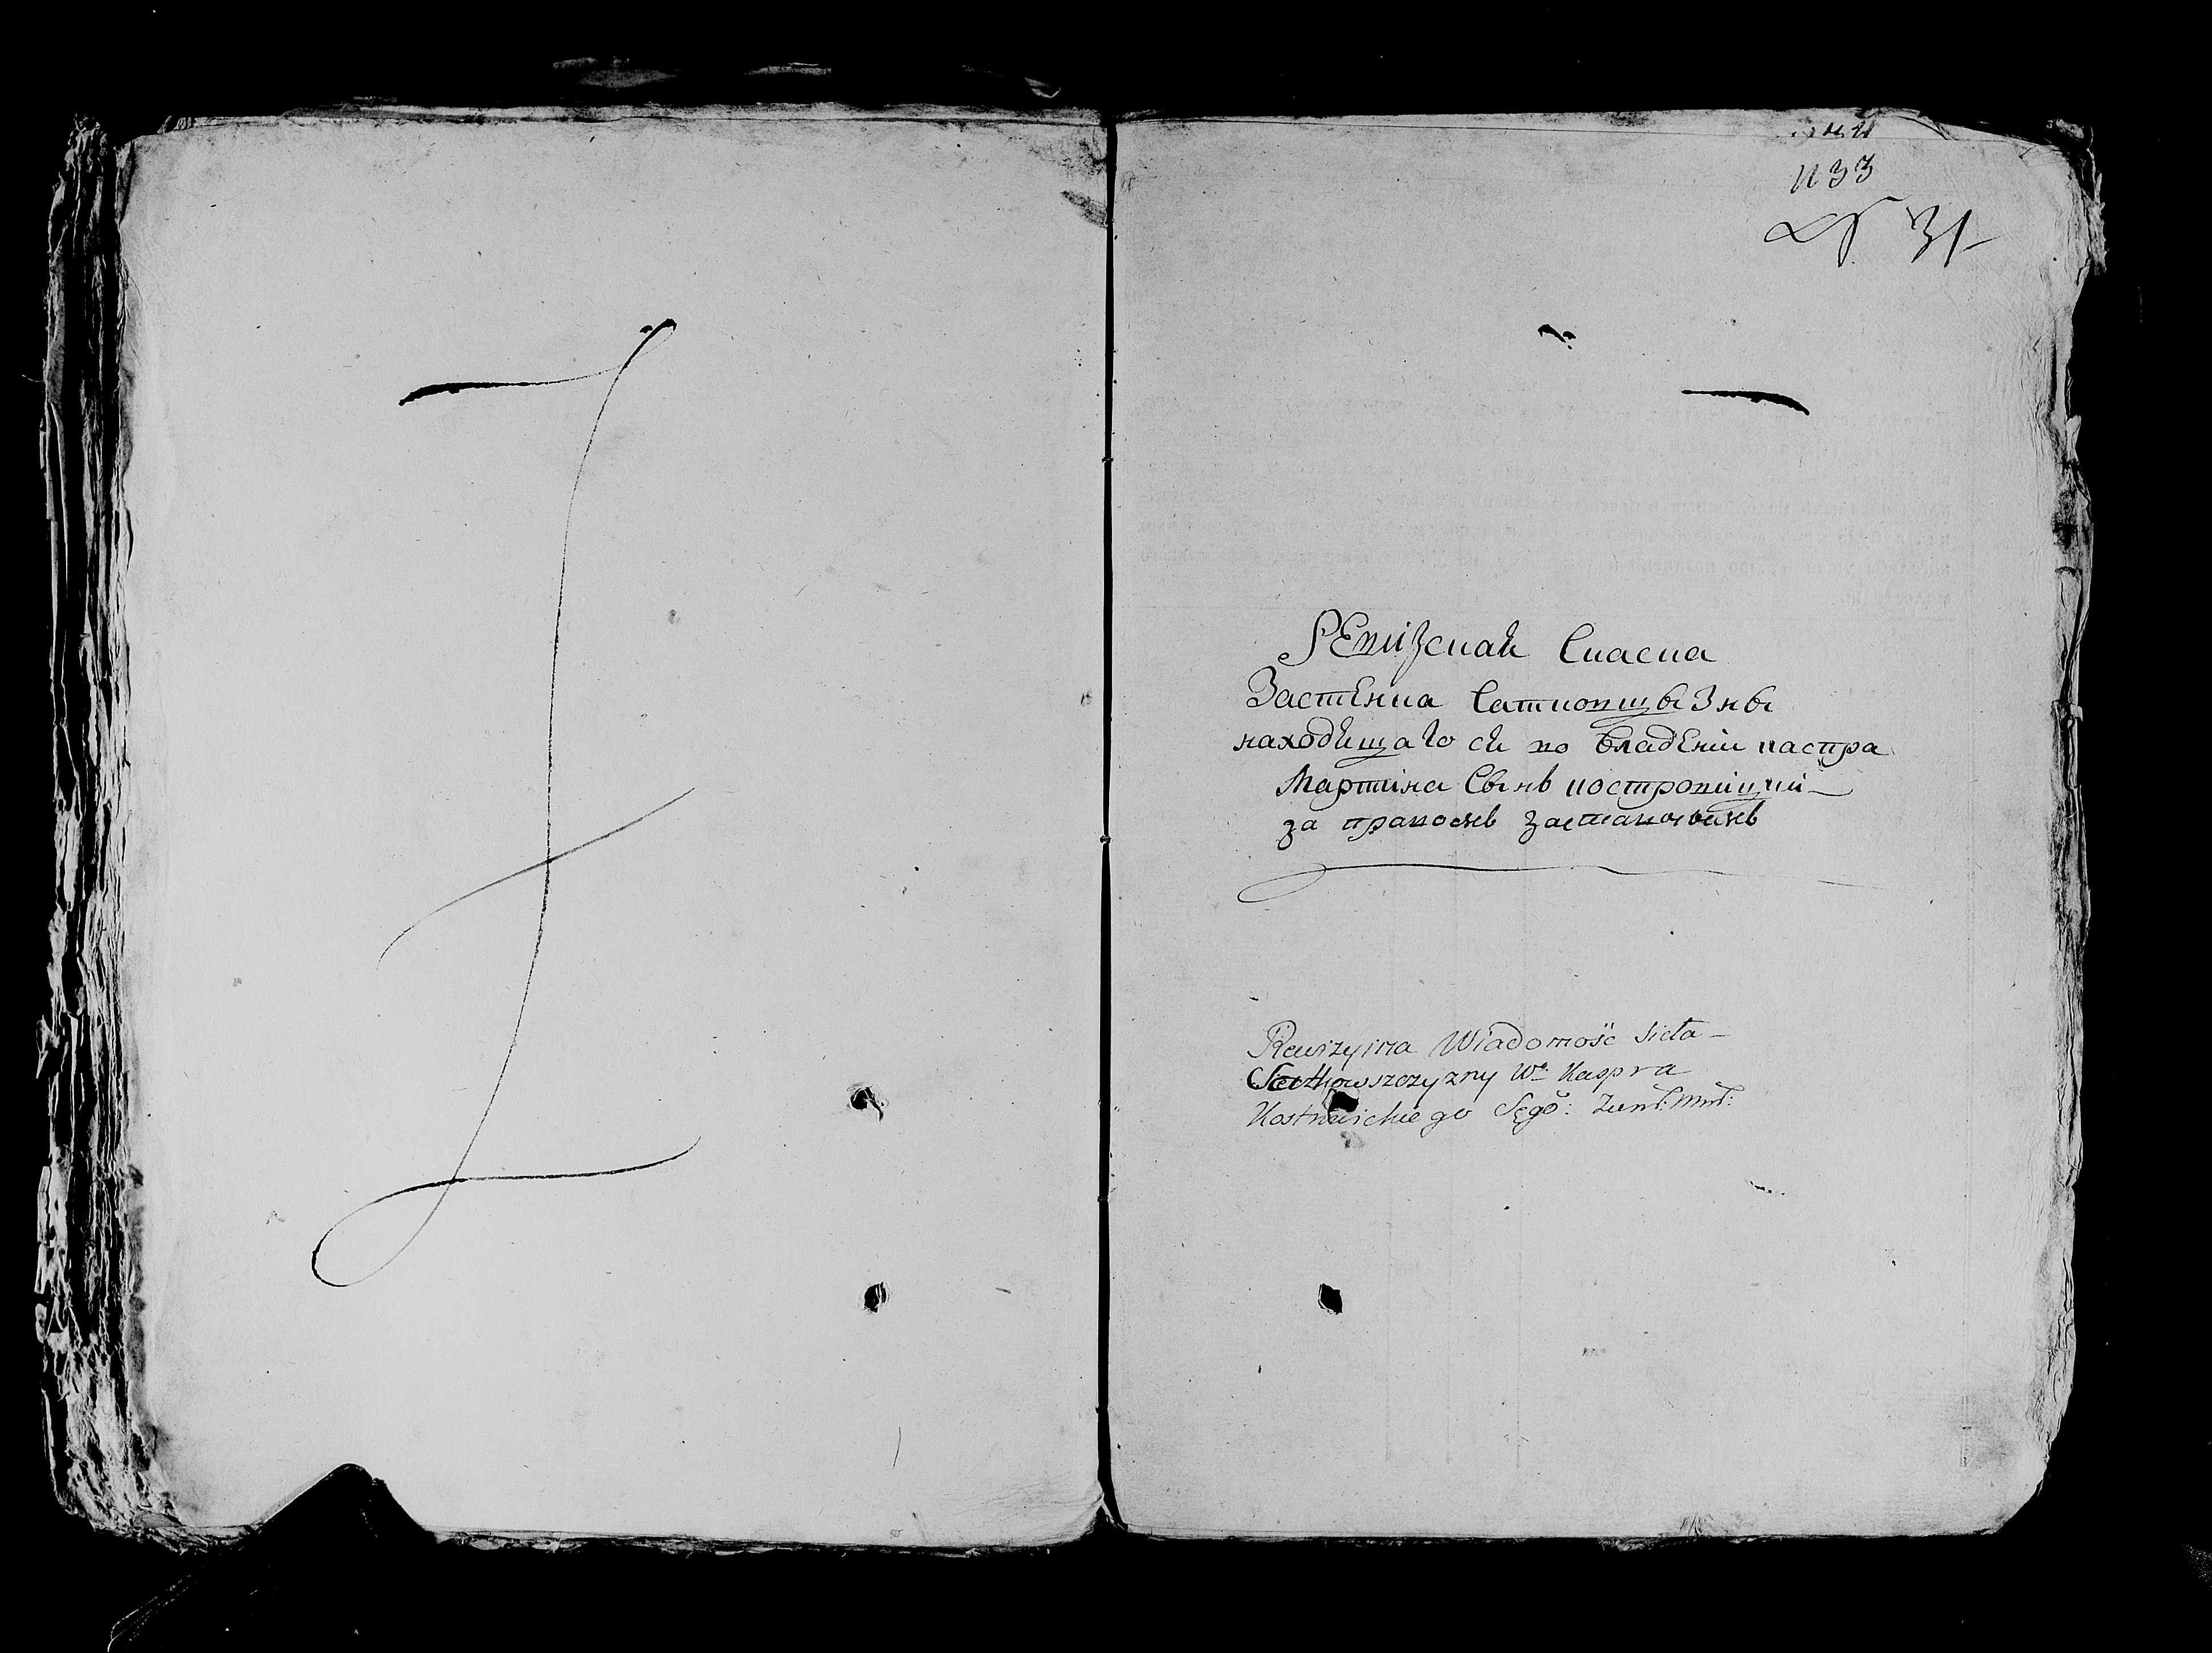 N 33
№ 31
Ревизская Сказка
Застенка Сатковщызны
находящаго ся во владении каспра
Мартина Сынъ костровицки
за правомъ застановнымъ
Rewizyina Wiadomość Sieła
Siestkowszczyzny Wo Kaspra
Kostrowickiego Sęgo: Ziem: Mnl: